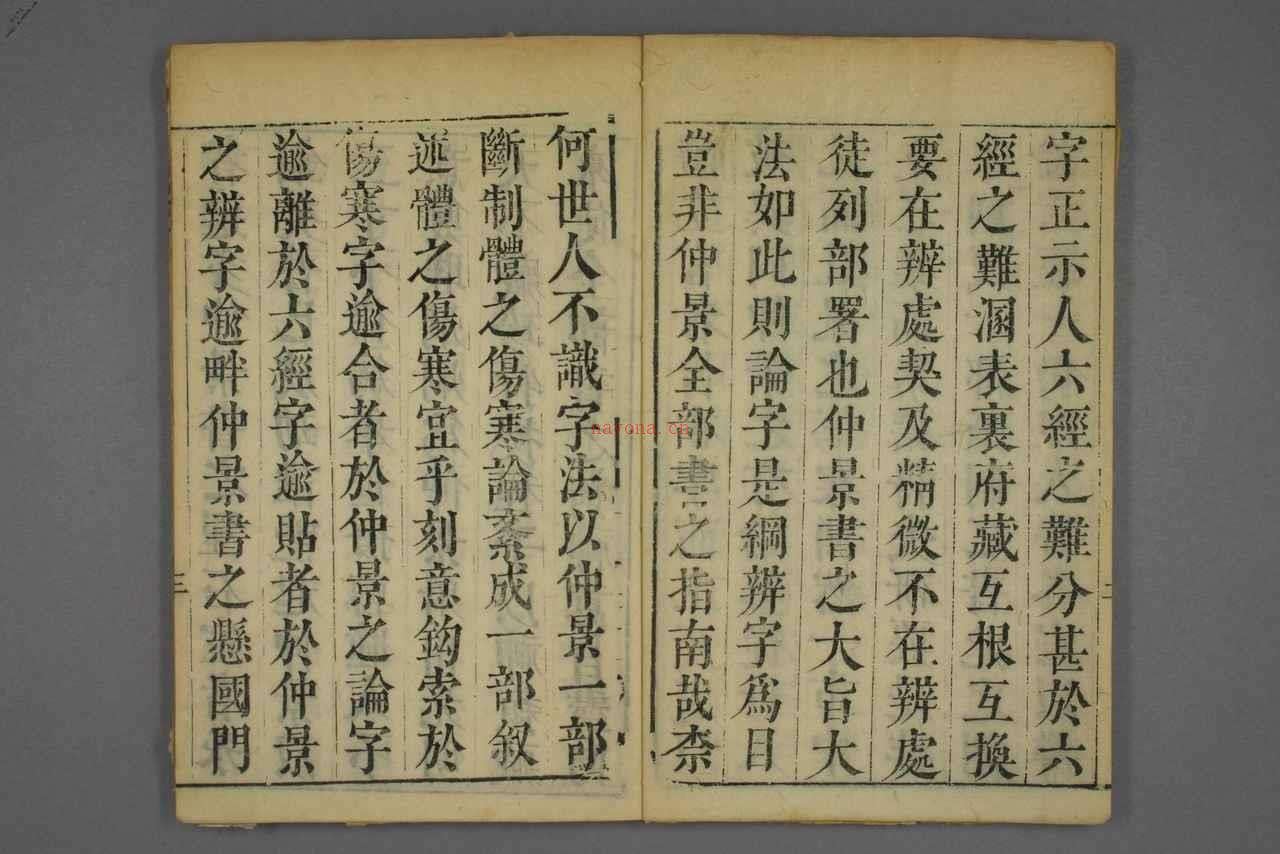 字正示人六經之難分甚於六
經之難溷表裏府藏互根互換
要在辨處契及精微不在辨處
徒列部署也仲景書之大旨大
法如此則論字是綱辨字爲目
豈非仲景全部書之指南哉柰
何世人不識字法以仲景一部
斷制體之傷寒論紊成一部叙
述體之傷寒宜乎刻意鈎索於
傷寒字逾合者於仲景之論字
逾離於六經字逾貼者於仲景
之辨字逾畔仲景書之懸國門
二
三
nayona.cn